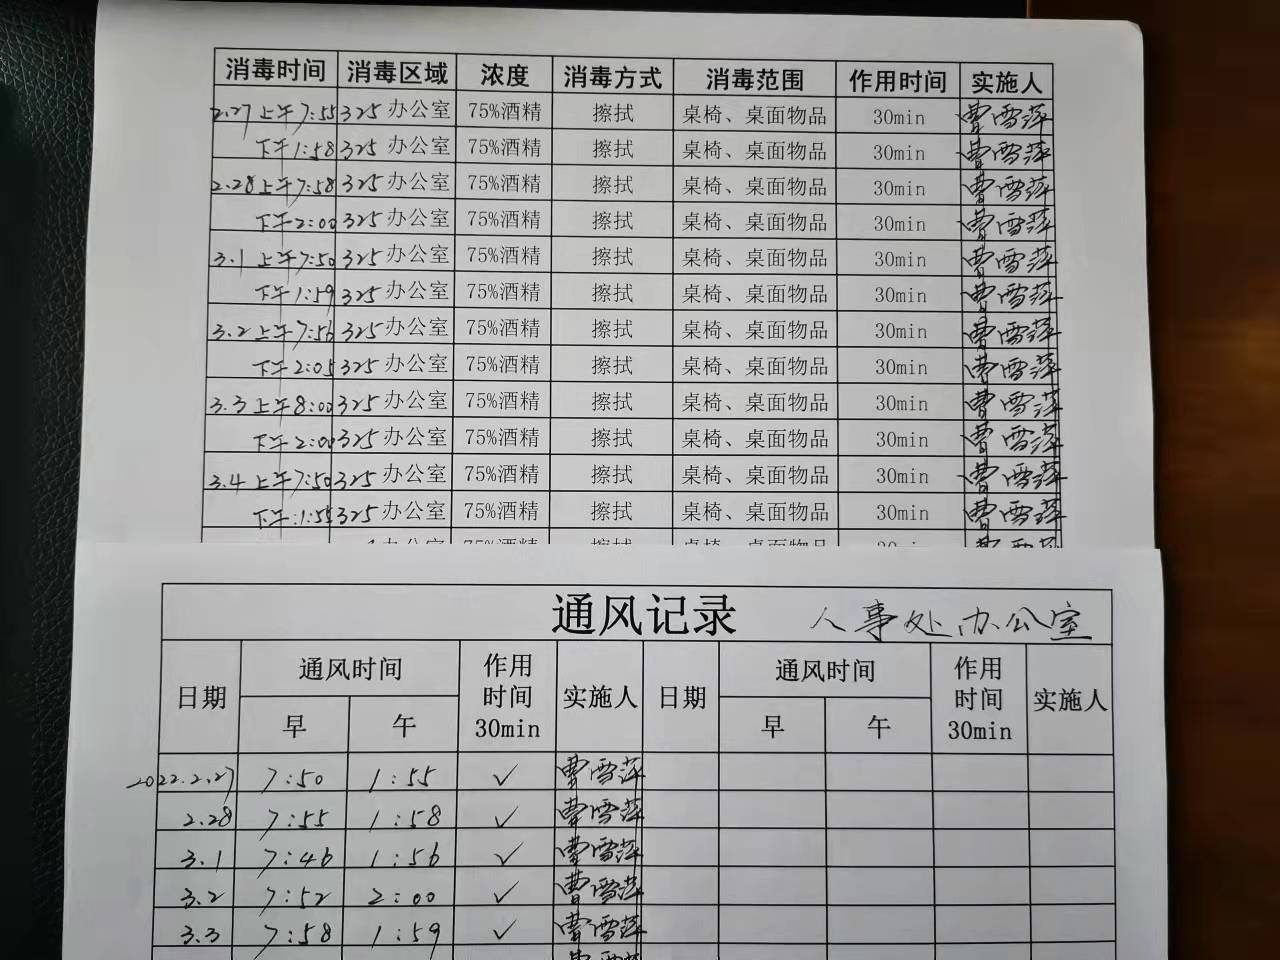 消毒时间 消毒区域 浓度 消毒方式 消毒范围 作用时间 实施人
2.27 上午7:55 325 办公室 75%酒精 擦拭 桌椅、桌面物品 30min 曹雪萍
下午1:58 325 办公室 75%酒精 擦拭 桌椅、桌面物品 30min 曹雪萍
2.28 上午7:58 325 办公室 75%酒精 擦拭 桌椅、桌面物品 30min 曹雪萍
下午2:00 325 办公室 75%酒精 擦拭 桌椅、桌面物品 30min 曹雪萍
3.1 上午7:50 325 办公室 75%酒精 擦拭 桌椅、桌面物品 30min 曹雪萍
下午1:59 325 办公室 75%酒精 擦拭 桌椅、桌面物品 30min 曹雪萍
3.2 上午7:56 325 办公室 75%酒精 擦拭 桌椅、桌面物品 30min 曹雪萍
下午2:05 325 办公室 75%酒精 擦拭 桌椅、桌面物品 30min 曹雪萍
3.3 上午8:00 325 办公室 75%酒精 擦拭 桌椅、桌面物品 30min 曹雪萍
下午2:00 325 办公室 75%酒精 擦拭 桌椅、桌面物品 30min 曹雪萍
3.4 上午7:50 325 办公室 75%酒精 擦拭 桌椅、桌面物品 30min 曹雪萍
下午:1:55 325 办公室 75%酒精 擦拭 桌椅、桌面物品 30min 曹雪萍
通风记录 人事处办公室
日期 通风时间 作用时间30min 实施人 日期 通风时间 作用时间30min 实施人
早 午 早 午
2022.2.27 7:50 1:55 ✓ 曹雪萍
2.28 7:55 1:58 ✓ 曹雪萍
3.1 7:46 1:56 ✓ 曹雪萍
3.2 7:52 2:00 ✓ 曹雪萍
3.3 7:58 1:59 ✓ 曹雪萍